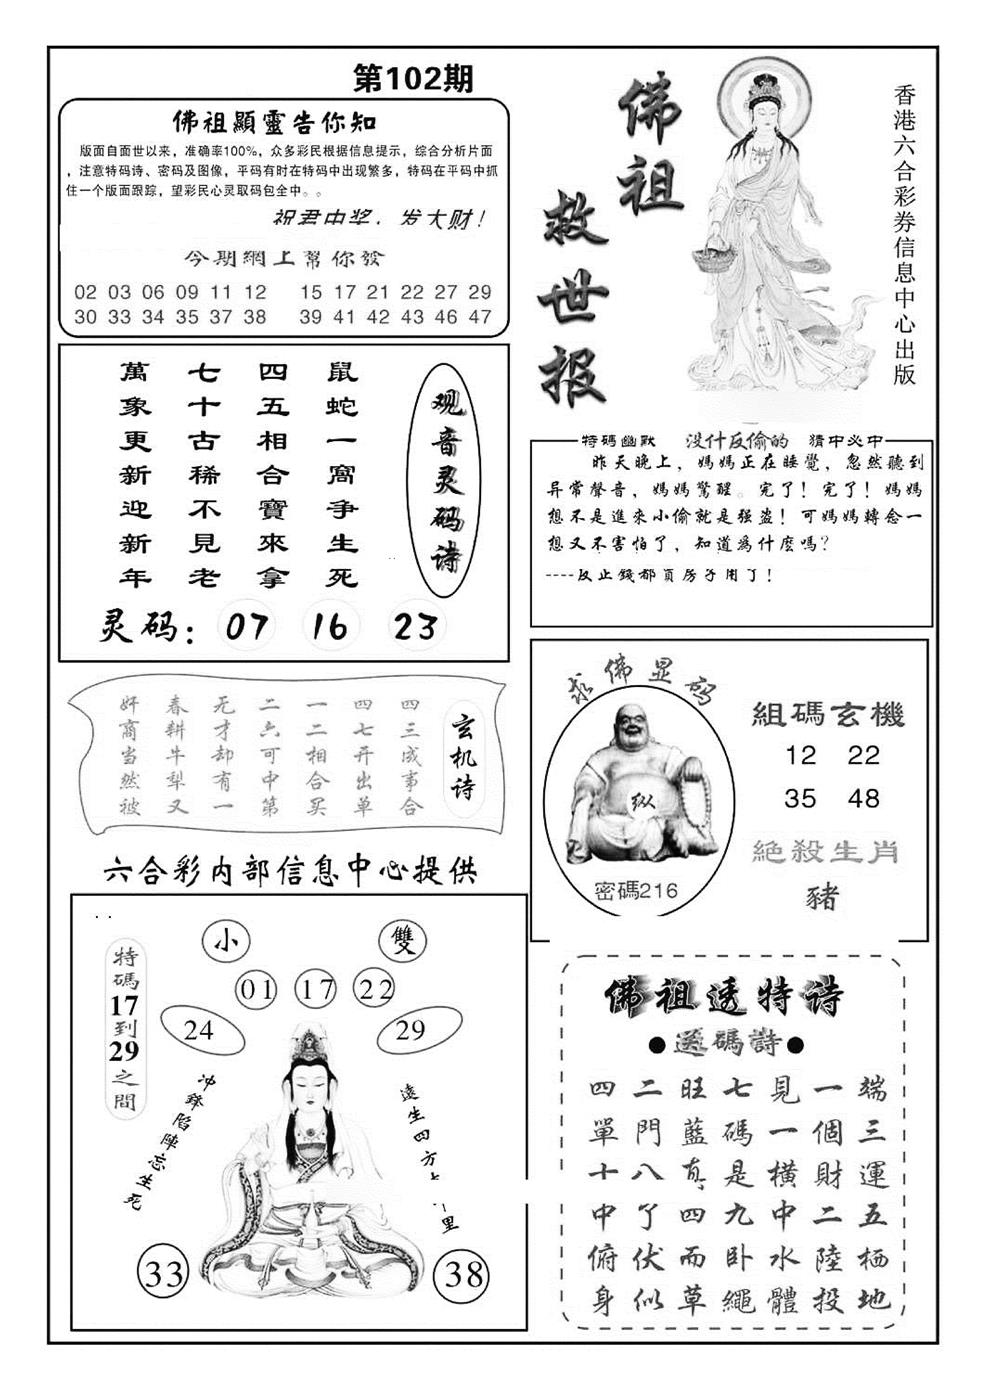 第102期
佛祖顯靈告你知
版面自面世以来，准确率100%，众多彩民根据信息提示，综合分析片面
，注意特码诗、密码及图像，平码有时在特码中出现繁多，特码在平码中抓
住一个版面跟踪，望彩民心灵取码包全中。。
祝君中奖，发大财！
今期網上幫你發
02 03 06 09 11 12 15 17 21 22 27 29
30 33 34 35 37 38 39 41 42 43 46 47
佛祖
救世报
香港六合彩券信息中心出版
观音灵码诗
鼠蛇一窩争生死
四五相合寶來拿
七十古稀不見老
萬象更新迎新年
灵码：07 16 23
特碼幽默 没什反偷的 猜中必中
昨天晚上，媽媽正在睡覺，忽然聽到
异常聲音，媽媽驚醒。完了！完了！媽媽
想不是進來小偷就是强盗！可媽媽轉念一
想又不害怕了，知道為什麽嗎？
----反正錢都買房子用了！
玄机诗
四三成事合
四七开出单
一二相合买
二六可中第
无才却有一
春耕牛犁又
奸商当然被
六合彩内部信息中心提供
求佛显码
纵
密碼216
組碼玄機
12 22
35 48
絕殺生肖
豬
特碼17到29之間
小
雙
01 17 22
24
29
冲鋒陷陣忘生死
遠生四方
里
33
38
佛祖透特诗
●送碼詩●
端三運五栖地
一個財二陸投
見一橫中水體
七碼是九卧繩
旺藍真四而草
二門八了伏似
四單十中俯身